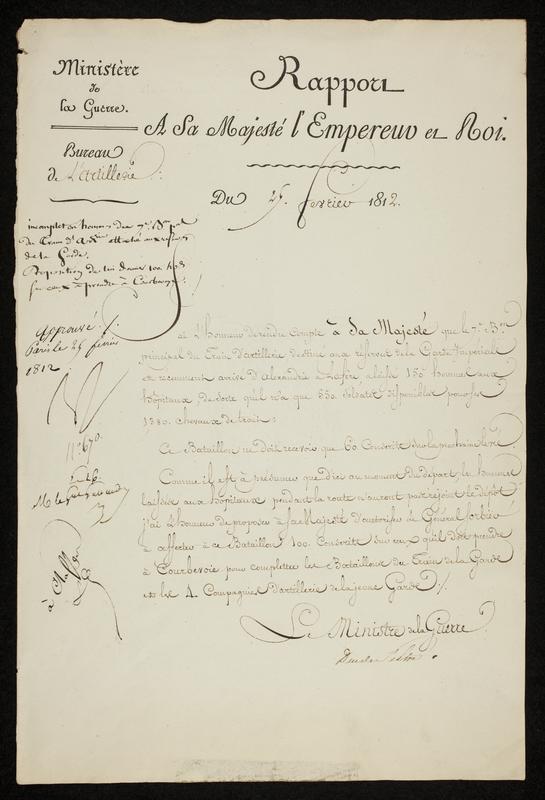 Ministère
de
la Guerre.
Bureau
de L'artillerie.
Rapport
A Sa Majesté l'Empereur et Roi.
Du 25. fevrier 1812.
incomplet en hommes du 7e. Bon. pal.
du Train d'art
de la Garde.
Proposition de lui donner 100 hes
sur ceux à prendre à Courbevoye
approuvé
Paris le 25 fevrier
1812.
N
no. 670.
J'ai L'honneur de rendre Compte à Sa Majesté que le 7e. Bon.
principal du Train d'artillerie destiné aux réserves de la Garde Impériale
et récemment arrivé d'Alexandrie à Lafère, a laissé 150 hommes aux
hôpitaux, de sorte qu'il n'a que 550 soldats disponibles pour ses
1380. chevaux de trait.
Ce Bataillon ne doit recevoir que 60 Conscrits sur la prochaine levée
Comme il est à présumer que d'ici au moment du départ, les hommes
laissés aux hôpitaux pendant la route n'auront pas rejoint le dépôt
j'ai L'honneur de proposer à Sa Majesté d'autoriser le Général Sorbier
à affecter à ce Bataillon 100. Conscrits sur ceux qu'il doit prendre
à Courbevoie pour completter les Bataillons du Train de la Garde
et les 4. Compagnies d'artillerie de la jeune Garde
Le Ministre de la Guerre